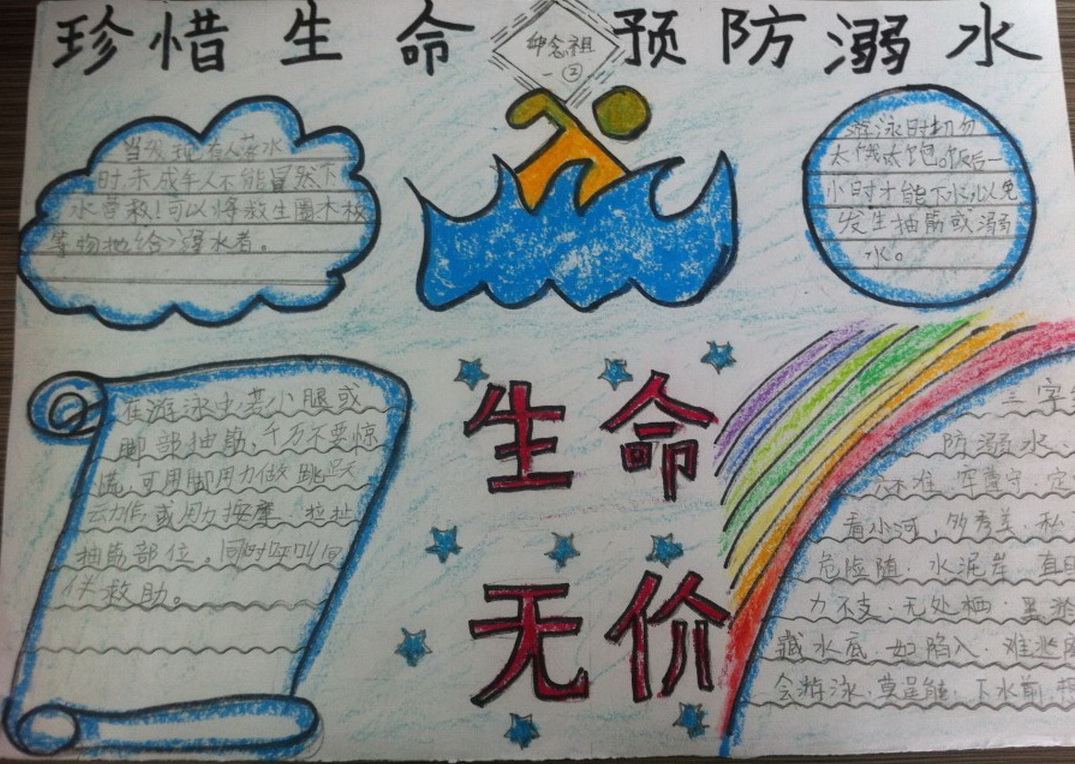 珍惜生命 预防溺水
钟念祖
一②
当发现有人落水
时,未成年人不能冒然下
水营救!可以将救生圈木板
等物抛给溺水者。
游泳时切勿
太饿太饱。饭后一
小时才能下水,以免
发生抽筋或溺
水。
在游泳中若小腿或
脚部抽筋,千万不要惊
慌,可用脚用力做跳跃
动作,或用力按摩、拉扯
抽筋部位。同时呼叫同
伴救助。
生命
无价
三字
防溺水、
六不准,牢遵守,定
看小河,多秀美,私
危险随.水泥岸.直
力不支.无处栖.黑淤
藏水底.如陷入.难逃
会游泳.莫逞能.下水前.